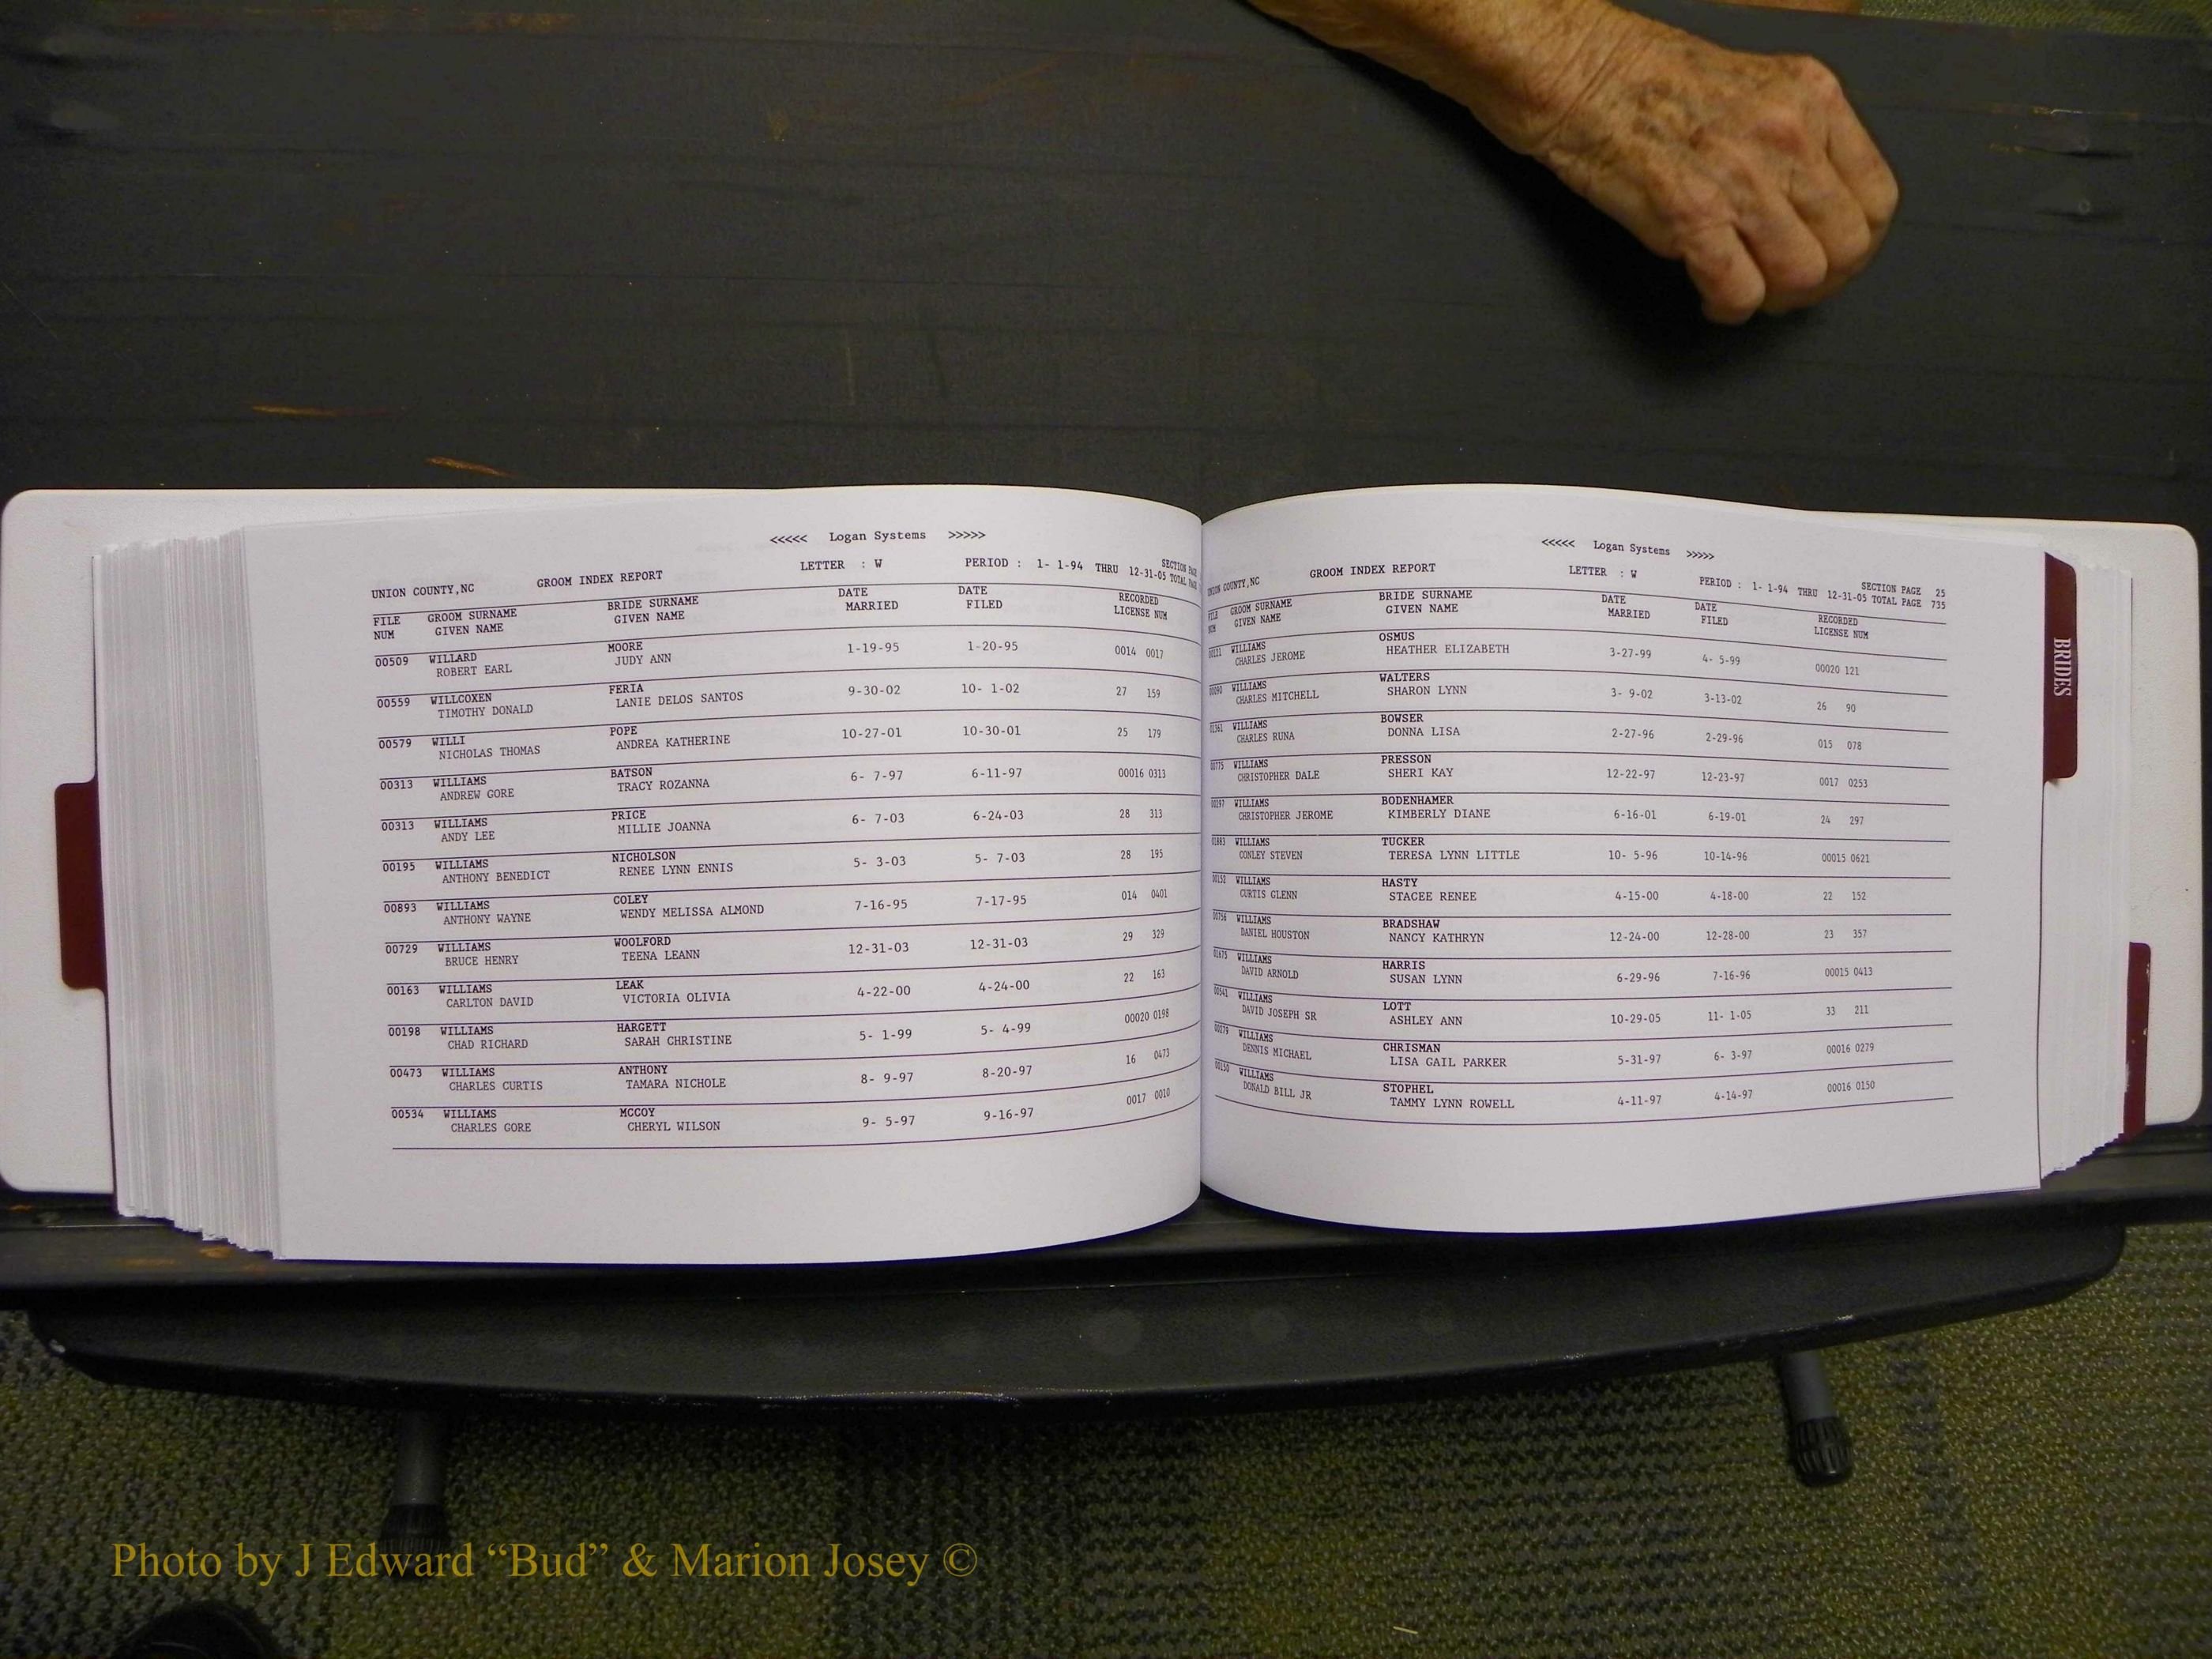 <<<<< Logan Systems >>>>>
UNION COUNTY,NC GROOM INDEX REPORT LETTER : W PERIOD : 1- 1-94 THRU 12-31-05 SECTION PAGE
TOTAL PAGE
FILE GROOM SURNAME BRIDE SURNAME DATE DATE RECORDED
NUM GIVEN NAME GIVEN NAME MARRIED FILED LICENSE NUM
00509 WILLARD MOORE 1-19-95 1-20-95 0014 0017
ROBERT EARL JUDY ANN
00559 WILLCOXEN FERIA 9-30-02 10- 1-02 27 159
TIMOTHY DONALD LANIE DELOS SANTOS
00579 WILLI POPE 10-27-01 10-30-01 25 179
NICHOLAS THOMAS ANDREA KATHERINE
00313 WILLIAMS BATSON 6- 7-97 6-11-97 00016 0313
ANDREW GORE TRACY ROZANNA
00313 WILLIAMS PRICE 6- 7-03 6-24-03 28 313
ANDY LEE MILLIE JOANNA
00195 WILLIAMS NICHOLSON 5- 3-03 5- 7-03 28 195
ANTHONY BENEDICT RENEE LYNN ENNIS
00893 WILLIAMS COLEY 7-16-95 7-17-95 014 0401
ANTHONY WAYNE WENDY MELISSA ALMOND
00729 WILLIAMS WOOLFORD 12-31-03 12-31-03 29 329
BRUCE HENRY TEENA LEANN
00163 WILLIAMS LEAK 4-22-00 4-24-00 22 163
CARLTON DAVID VICTORIA OLIVIA
00198 WILLIAMS HARGETT 5- 1-99 5- 4-99 00020 0198
CHAD RICHARD SARAH CHRISTINE
00473 WILLIAMS ANTHONY 8- 9-97 8-20-97 16 0473
CHARLES CURTIS TAMARA NICHOLE
00534 WILLIAMS MCCOY 9- 5-97 9-16-97 0017 0010
CHARLES GORE CHERYL WILSON
<<<<< Logan Systems >>>>>
UNION COUNTY,NC GROOM INDEX REPORT LETTER : W PERIOD : 1- 1-94 THRU 12-31-05 SECTION PAGE 25
TOTAL PAGE 735
FILE GROOM SURNAME BRIDE SURNAME DATE DATE RECORDED
NUM GIVEN NAME GIVEN NAME MARRIED FILED LICENSE NUM
00121 WILLIAMS OSMUS 3-27-99 4- 5-99 00020 121
CHARLES JEROME HEATHER ELIZABETH
00090 WILLIAMS WALTERS 3- 9-02 3-13-02 26 90
CHARLES MITCHELL SHARON LYNN
WILLIAMS BOWSER 2-27-96 2-29-96 015 078
CHARLES RUNA DONNA LISA
00775 WILLIAMS PRESSON 12-22-97 12-23-97 0017 0253
CHRISTOPHER DALE SHERI KAY
00297 WILLIAMS BODENHAMER 6-16-01 6-19-01 24 297
CHRISTOPHER JEROME KIMBERLY DIANE
01883 WILLIAMS TUCKER 10- 5-96 10-14-96 00015 0621
CONLEY STEVEN TERESA LYNN LITTLE
00152 WILLIAMS HASTY 4-15-00 4-18-00 22 152
CURTIS GLENN STACEE RENEE
00756 WILLIAMS BRADSHAW 12-24-00 12-28-00 23 357
DANIEL HOUSTON NANCY KATHRYN
01675 WILLIAMS HARRIS 6-29-96 7-16-96 00015 0413
DAVID ARNOLD SUSAN LYNN
00541 WILLIAMS LOTT 10-29-05 11- 1-05 33 211
DAVID JOSEPH SR ASHLEY ANN
00279 WILLIAMS CHRISMAN 5-31-97 6- 3-97 00016 0279
DENNIS MICHAEL LISA GAIL PARKER
00150 WILLIAMS STOPHEL 4-11-97 4-14-97 00016 0150
DONALD BILL JR TAMMY LYNN ROWELL
BRIDES
Photo by J Edward “Bud” & Marion Josey ©